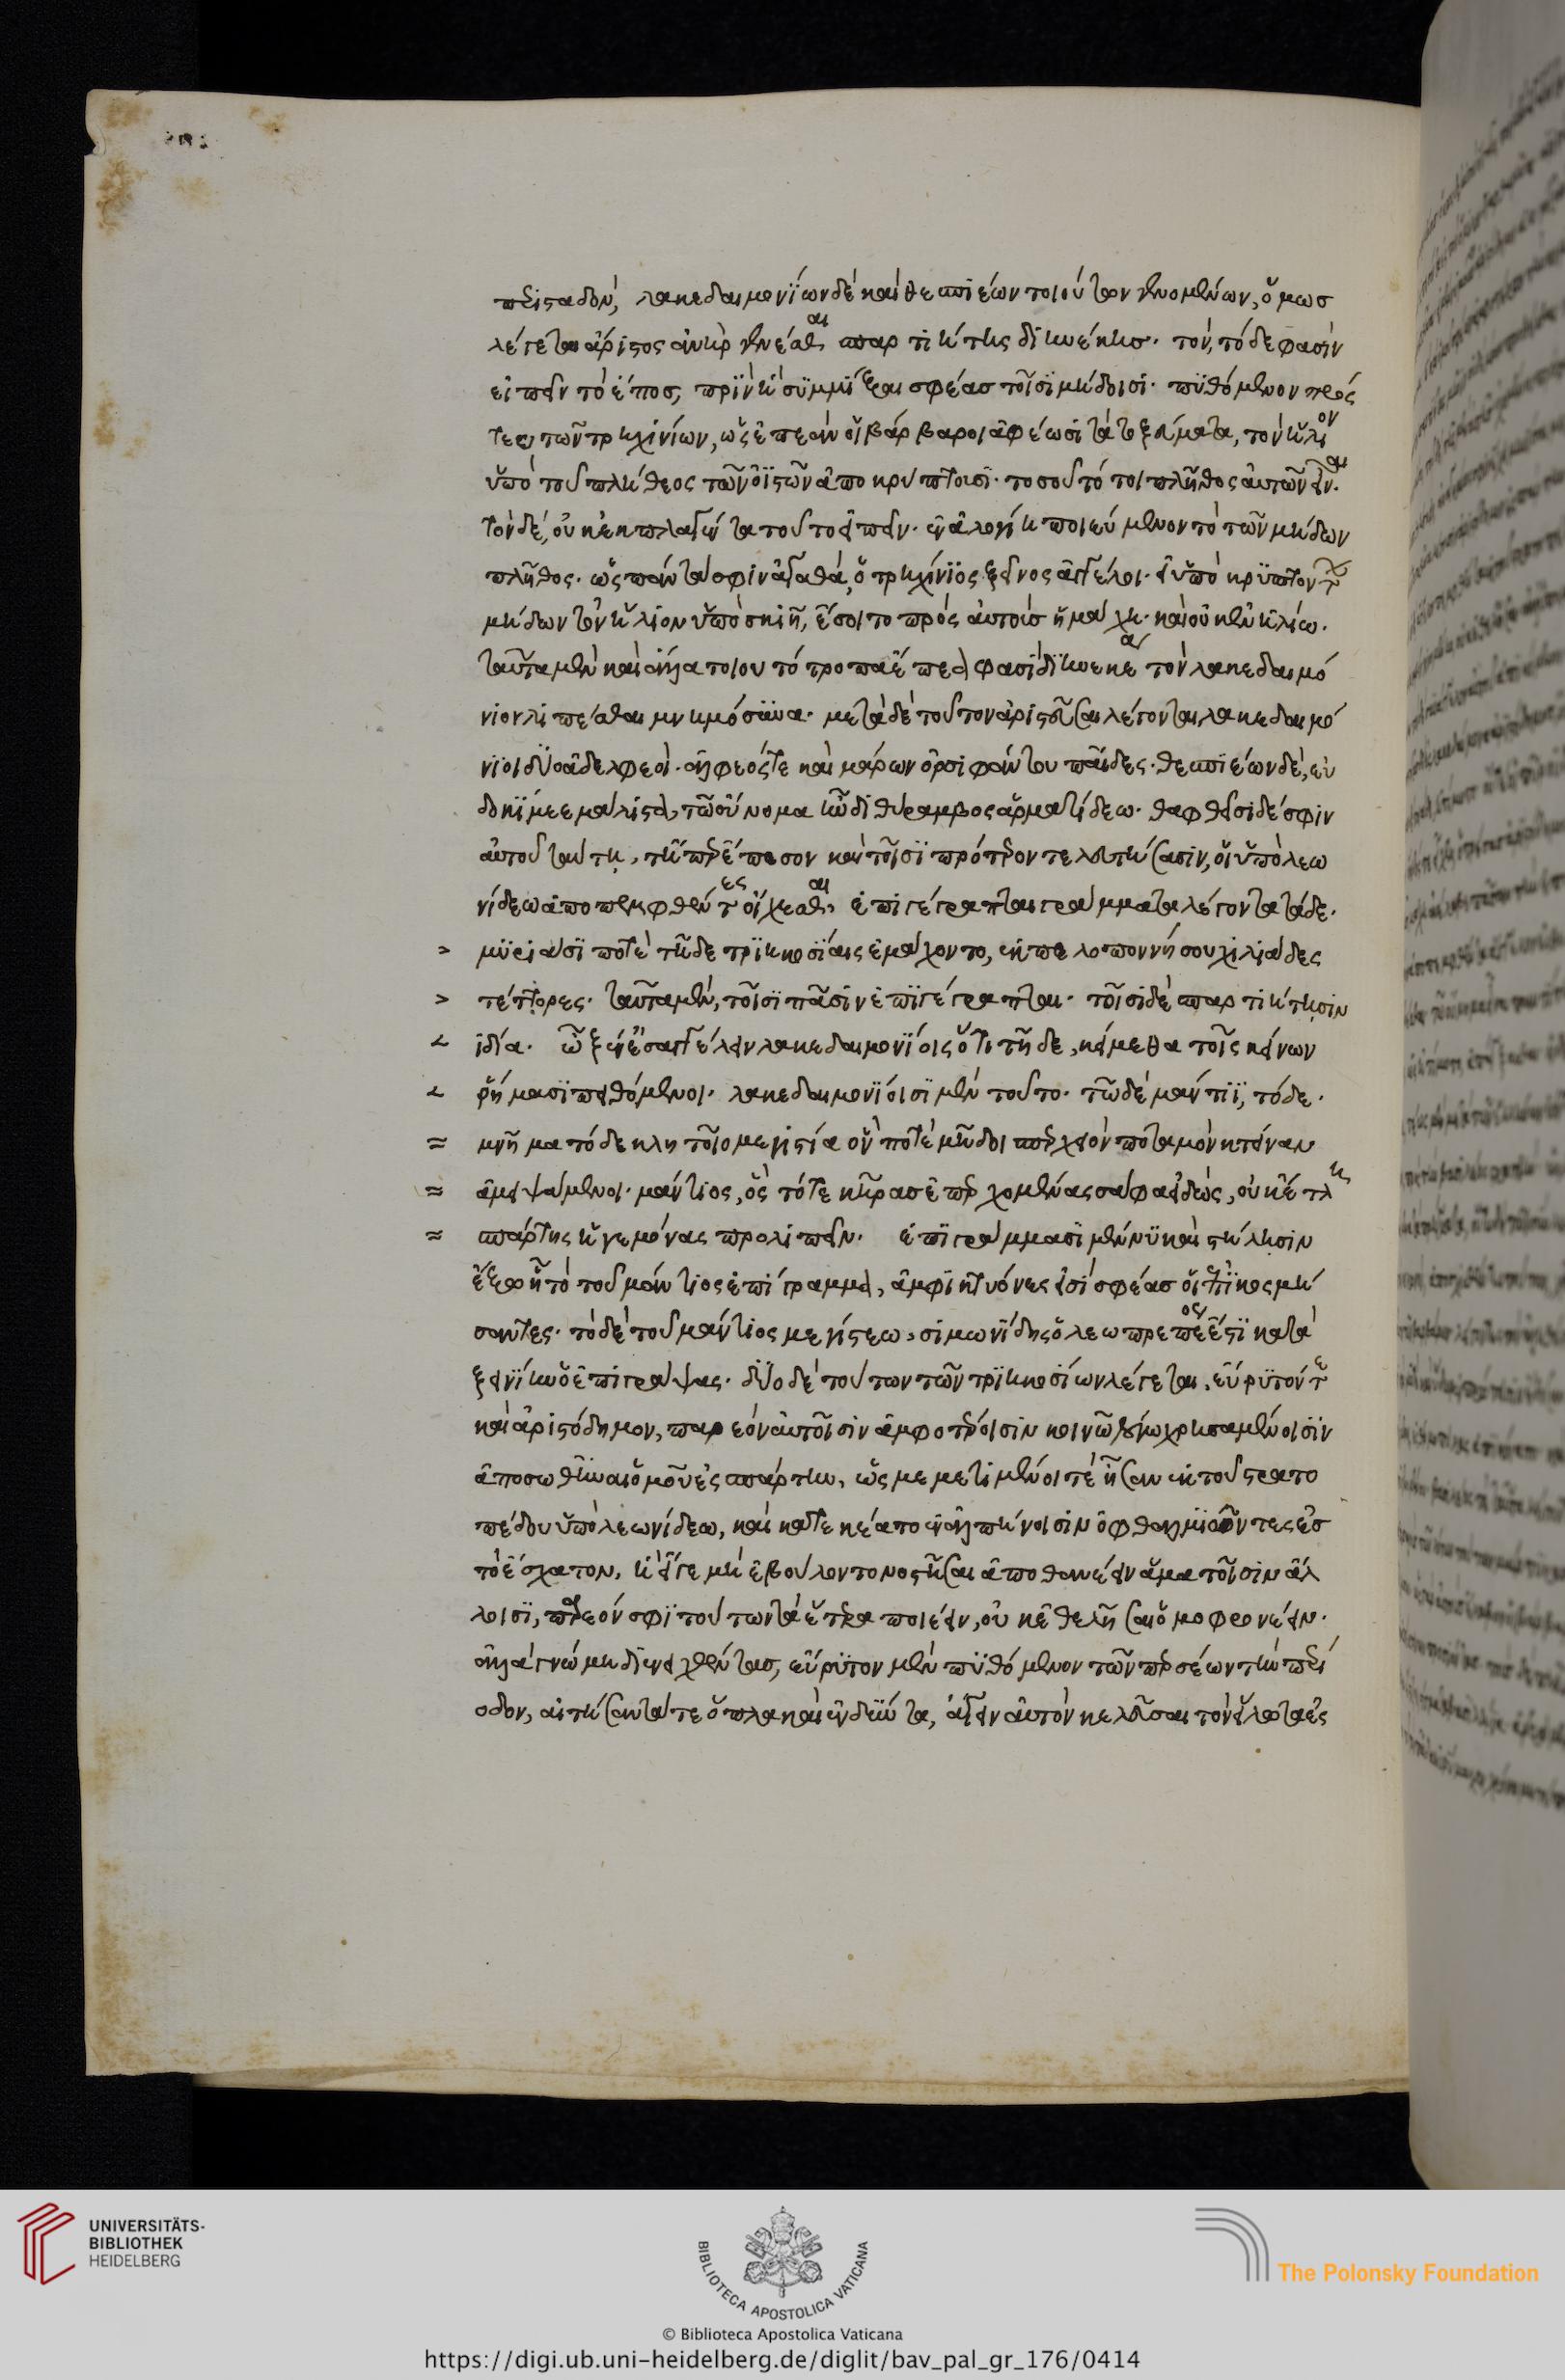 περιϊσταδόν, λακεδαιμονίων δὲ καὶ θεσπιέων τοιούτων γενομένων, ὅμως
λέγεται ἄριστος ἀνὴρ γενέσθαι σπαρτιήτης διηνέκης. τὸν, τόδε φασὶν
εἰπεῖν τὸ ἔπος, πρὶν ἢ συμμῖξαι σφέας τοῖσι μήδοισι. πυθόμενον πρός
τευ τῶν τρηχινίων, ὡς ἐπεὰν οἱ βάρβαροι ἀφέωσι τὰ τοξεύματα, τὸν ἥλιον
ὑπὸ τοῦ πλήθεος τῶν ὀϊστῶν ἀποκρύπτουσι. τοσοῦτό τοι πλῆθος αὐτῶν εἶναι.
τὸν δέ, οὐκ ἐκπλαγέντα τούτοισι εἰπεῖν. ἐν ἀλογίη ποιεύμενον τὸ τῶν μήδων
πλῆθος. ὡς πάντα σφιν ἀγαθά, ὁ τρηχίνιος ξεῖνος ἀγγέλοι. εἰ ὑποκρυπτόντων
μήδων τὸν ἥλιον ὑπὸ σκιῇ, ἔσοιτο πρὸς αὐτοὺς ἡ μάχη. καὶ οὐκ ἐν ἡλίω.
ταῦτα μὲν καὶ ἄλλα τοιουτότροπα ἔπεα φασὶ διηνεκεα τὸν λακεδαιμό
νιον λιπέσθαι μνημόσυνα. μετὰ δὲ τοῦτον ἀριστεῦσαι λέγονται λακεδαιμό
νιοι δύο ἀδελφεοί. ἀλφεός τε καὶ μάρων ὀρσιφάντου παῖδες. θεσπιέων δὲ, εὐ
δοκίμεε μάλιστα, τῶ οὔνομα ἦν διθύραμβος ἁρματίδεω. θαφθεῖσι δέ σφιν
αὐτοῦ ταύτη, τῆπερ ἔπεσον καὶ τοῖσι πρότερον τελευτήσασιν, ἢ ὑπὸ λεω
νίδεω ἀποπεμφθέντες οἴχεσθαι, ἐπιγέγραπται γράμματα λέγοντα τάδε.
> μυριάσι ποτὲ τῆδε τριηκοσίαις ἐμάχοντο, ἐκ πελοποννήσου χιλιάδες
> τέττορες. ταῦτα μὲν, τοῖσι πᾶσιν ἐπιγέγραπται. τοῖσι δὲ σπαρτιήτησιν
< ἰδία. ὦ ξεῖν ἔς ἀγγέλειν λακεδαιμονίοις ὅτι τῇδε, κείμεθα τοῖς κείνων
< ῥήμασι πειθόμενοι. λακεδαιμονίοισι μὲν τοῦτο. τῶ δὲ μάντιϊ, τόδε.
≈ μνῆμα τόδε κλητοῖο μεγιστία ὅν ποτὲ μῆδοι σπερχειὸν ποταμὸν κτεῖναν
≈ ἀμειψάμενοι. μάντιος, ὃς τότε κῆρας ἐπερχομένας σάφα εἰδὼς, οὐκ ἔτλη
≈ σπάρτης ἡγεμόνας προλιπεῖν. ἐπιγράμμασι μὲν νυν καὶ στήλησιν
ἔξω ἢ τὸ τοῦ μάντιος ἐπίγραμμα, ἀμφικτυόνες εἰσί σφέας οἱ ἐπικοσμή
σαντες. τὸ δὲ τοῦ μάντιος μεγίστεω, σιμωνίδης ὁ λεωπρέπεος ἐστι κατὰ
ξεινίην ὁ ἐπιγράψας. δύο δὲ τούτων τῶν τριηκοσίων λέγεται, εὔρυτόν τε
καὶ ἀριστόδημον, παρεὸν αὐτοῖσιν ἀμφοτέροισιν κοινῶ λόγω χρησαμένοισιν
ἀποσωθῆναι ὁμοῦ ἐς σπάρτην, ὡς μεμετιμένοι τὲ ἦσαν ἐκ τοῦ στρατο
πέδου ὑπὸ λεωνίδεω, καὶ κατεκέατο ἐν ἀλπηνοῖσιν ὀφθαλμιῶντες ἐς
τὸ ἔσχατον, ἢ εἴγε μὴ ἐβούλοντο νοστῆσαι ἀποθανέειν ἅμα τοῖσιν ἄλ
λοισι, παρεόν σφι τούτων τὰ ἕτερα ποιέειν, οὐκ ἐθελῆσαι ὁμοφρονέειν.
ἀλλὰ γνώμη διενειχθέντας, εὔρυτον μὲν πυθόμενον τῶν περσέων τὴν περί
οδον, αἰτήσαντά τε ὅπλα καὶ ἐνδύντα, ἄγειν αὐτὸν κελεῦσαι τὸν εἵλωτα ἐς
UNIVERSITÄTS-
BIBLIOTHEK
HEIDELBERG
BIBLIOTECA APOSTOLICA VATICANA
The Polonsky Foundation
© Biblioteca Apostolica Vaticana
https://digi.ub.uni-heidelberg.de/diglit/bav_pal_gr_176/0414